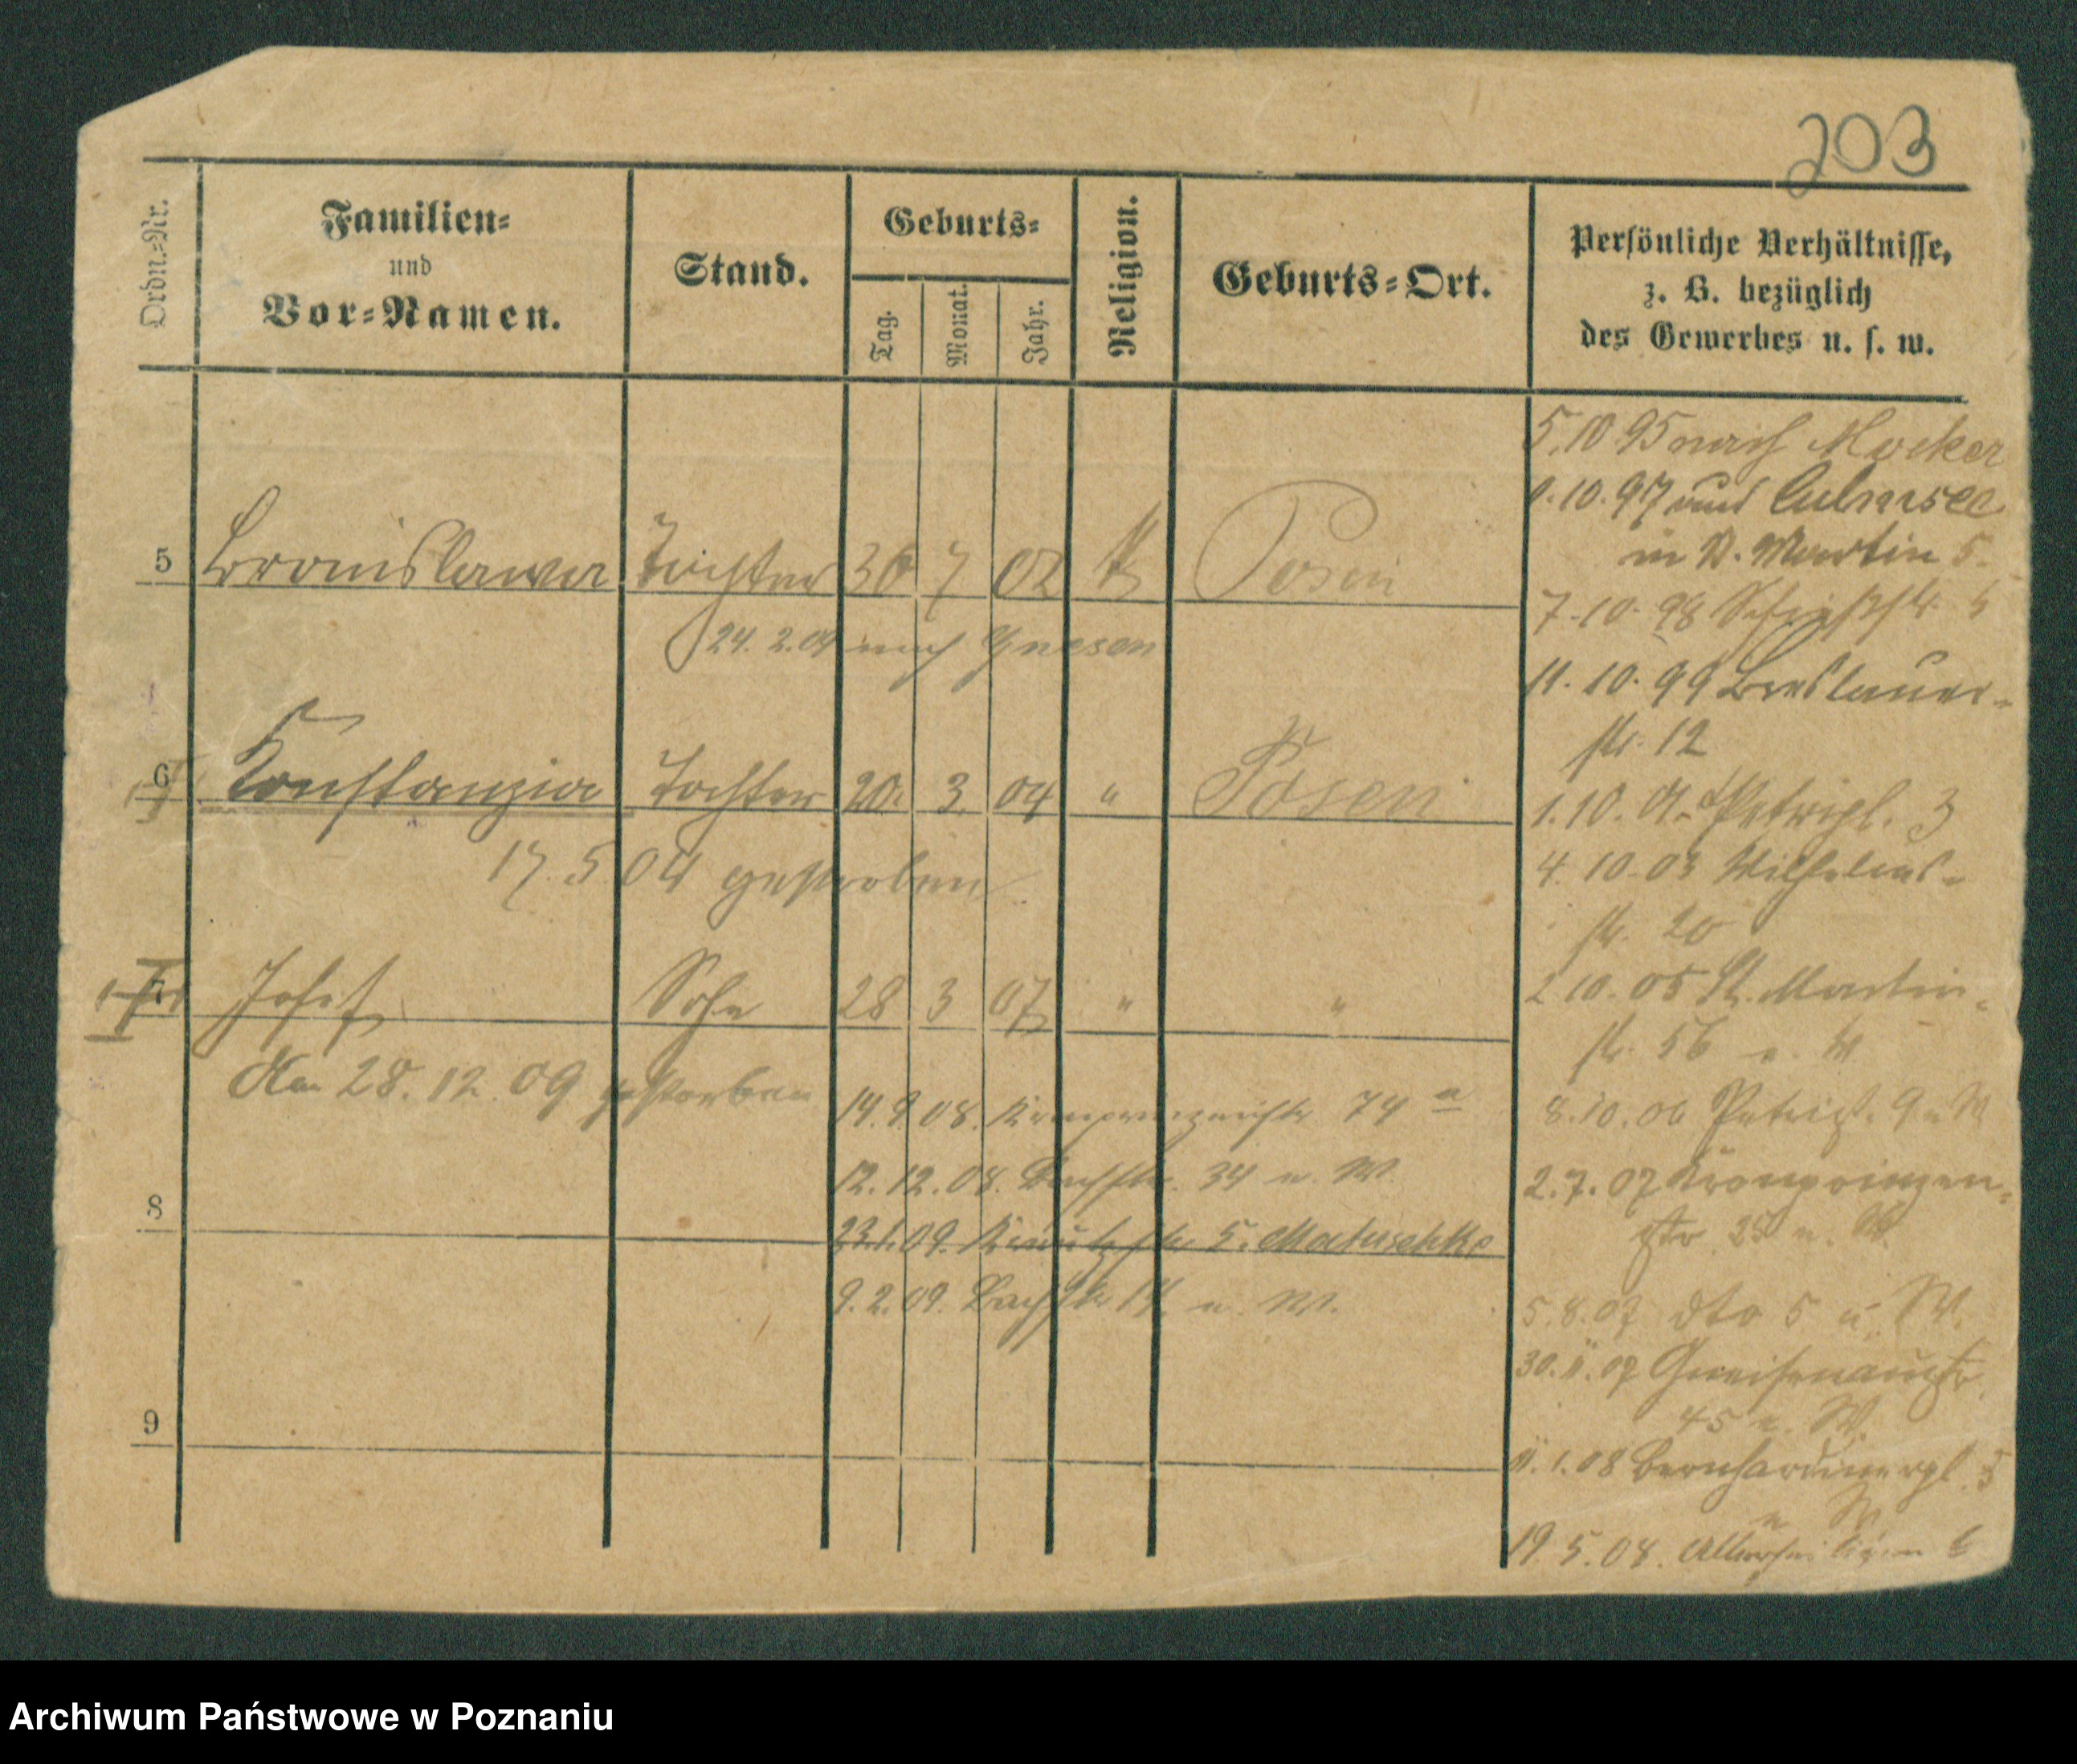 203
Ordn.=Nr.
Familien=
und
Vor=Namen.
Stand.
Geburts=
Tag.
Monat.
Jahr.
Religion.
Geburts=Ort.
Persönliche Verhältnisse,
z. B. bezüglich
des Gewerbes u. s. w.
5 Bronislawa Tochter 30 7 02 K Posen
24.2.04 nach Gnesen
6 Konstanzia Tochter 20. 3. 04 " Posen
17.5.04 gestorben
7 Josef Sohn 28 3 07 " "
den 28.12.09 gestorben
14.9.08. Kronprinzenstr 74 a
8
12.12.08. Bachstr. 34 u. W.
23.1.09. 5. Matuschke
9.2.09. Bachstr 14 u. W.
9
5.10 95 nach Mocker
10.97 und Culmsee
in St. Martin 5.
7.10.98 Schießstr. 5
11.10.99 Breslauer-
str. 12
1.10.01. Petripl. 3
4.10.03 Wilhelms-
str. 20
2 10.05 St. Martin-
str. 56 u. W
8.10.06 Petripl. 9 u W
2.7.07 Kronprinzen-
str. 25 u. W.
5.8.07 dto 5 u. W.
30.11.07 Gneisenaustr.
45 u. W.
11.1.08 Bernhardinerpl. 5
u W
19.5.08. Allerheiligen 6
Archiwum Państwowe w Poznaniu